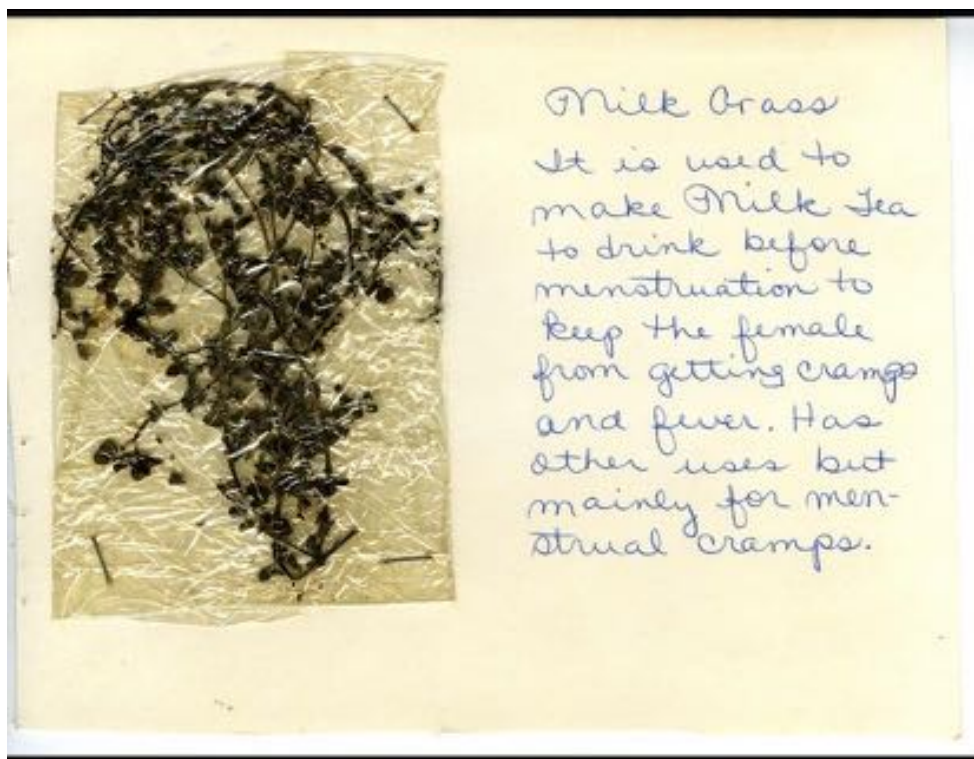 Milk Grass
It is used to
make Milk Tea
to drink before
menstruation to
keep the female
from getting cramps
and fever. Has
other uses but
mainly for men-
strual cramps.